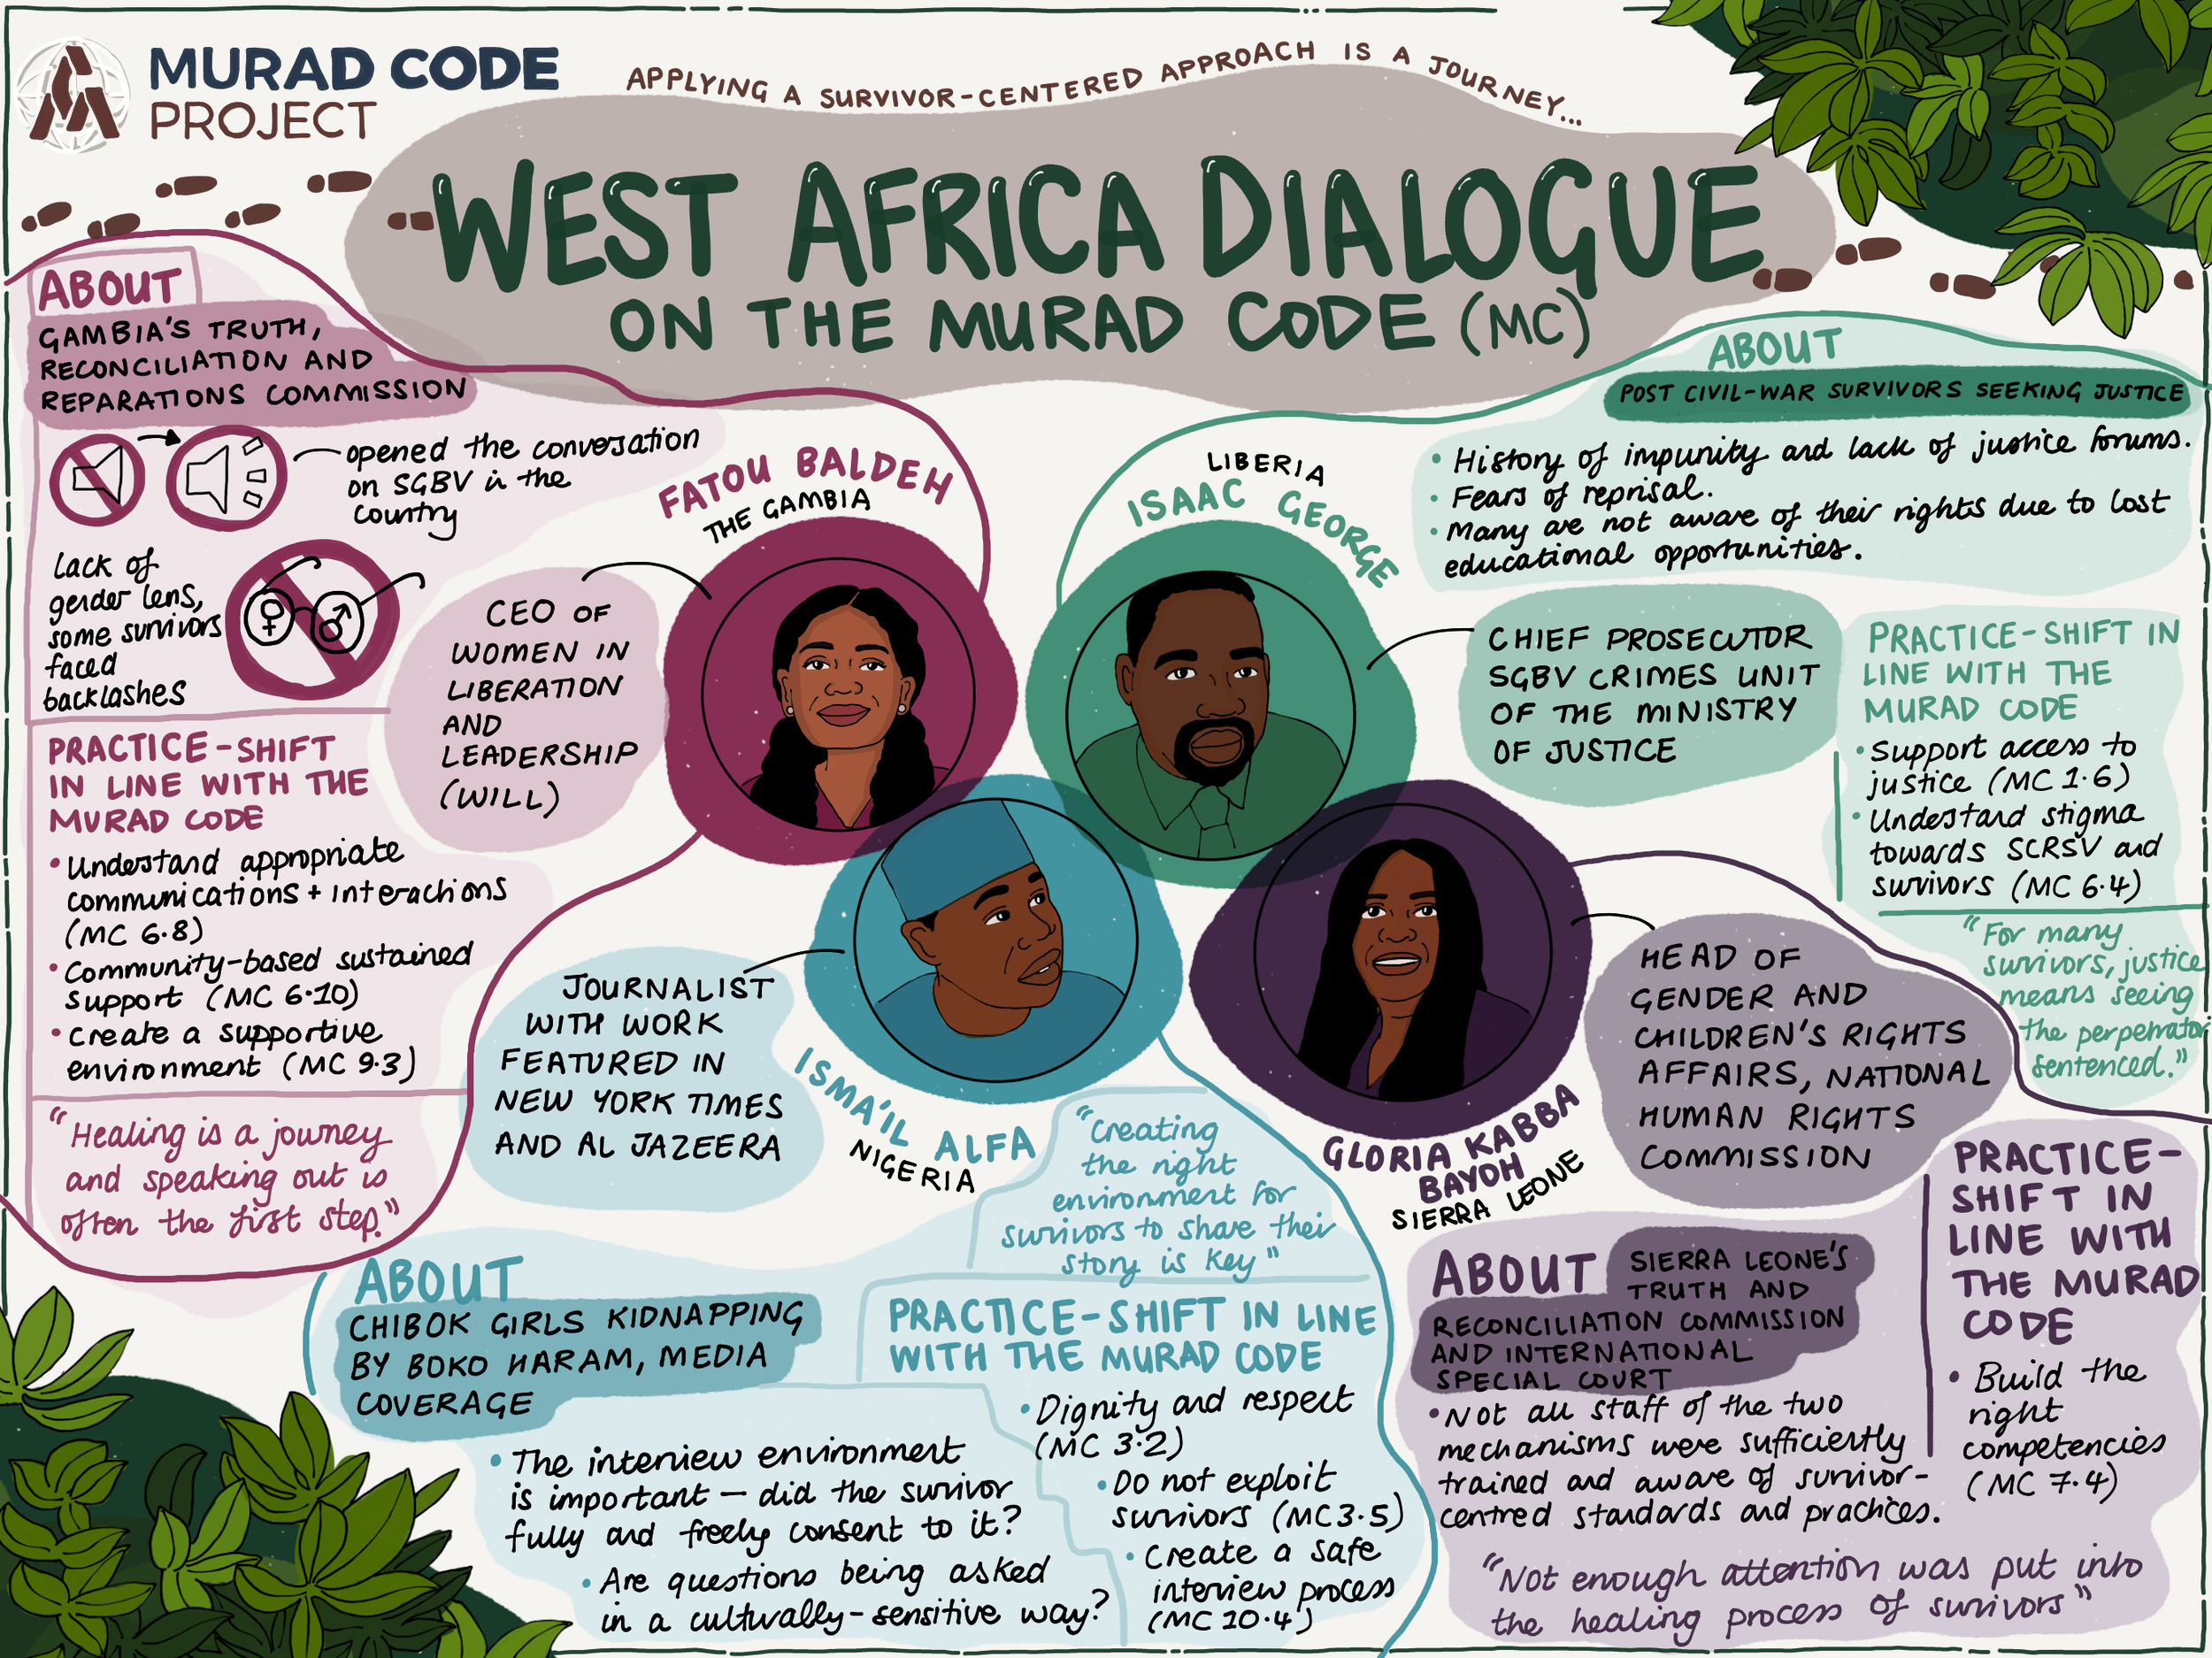 MURAD CODE
PROJECT
APPLYING A SURVIVOR-CENTERED APPROACH IS A JOURNEY...
WEST AFRICA DIALOGUE
ON THE MURAD CODE (MC)
ABOUT
GAMBIA'S TRUTH,
RECONCILIATION AND
REPARATIONS COMMISSION
opened the conversation
on SGBV in the
country
lack of
gender lens,
some survivors
faced
backlashes
PRACTICE-SHIFT
IN LINE WITH THE
MURAD CODE
• Understand appropriate
communications + interactions
(MC 6.8)
• Community-based sustained
support (MC 6.10)
• Create a supportive
environment (MC 9.3)
"Healing is a journey
and speaking out is
often the first step."
FATOU BALDEH
THE GAMBIA
CEO OF
WOMEN IN
LIBERATION
AND
LEADERSHIP
(WILL)
LIBERIA
ISAAC GEORGE
CHIEF PROSECUTOR
SGBV CRIMES UNIT
OF THE MINISTRY
OF JUSTICE
ABOUT
POST CIVIL-WAR SURVIVORS SEEKING JUSTICE
• History of impunity and lack of justice forums.
• Fears of reprisal.
• Many are not aware of their rights due to lost
educational opportunities.
PRACTICE-SHIFT IN
LINE WITH THE
MURAD CODE
• Support access to
justice (MC 1.6)
• Understand stigma
towards SCRSV and
survivors (MC 6.4)
"For many
survivors, justice
means seeing
the perpetrator
sentenced."
JOURNALIST
WITH WORK
FEATURED IN
NEW YORK TIMES
AND AL JAZEERA
ISMA'IL ALFA
NIGERIA
"Creating
the right
environment for
survivors to share their
story is key"
ABOUT
CHIBOK GIRLS KIDNAPPING
BY BOKO HARAM, MEDIA
COVERAGE
• The interview environment
is important — did the survivor
fully and freely consent to it?
• Are questions being asked
in a culturally-sensitive way?
PRACTICE-SHIFT IN LINE
WITH THE MURAD CODE
• Dignity and respect
(MC 3.2)
• Do not exploit
survivors (MC3.5)
• Create a safe
interview process
(MC 10.4)
GLORIA KABBA
BAYOH
SIERRA LEONE
HEAD OF
GENDER AND
CHILDREN'S RIGHTS
AFFAIRS, NATIONAL
HUMAN RIGHTS
COMMISSION
ABOUT SIERRA LEONE'S
TRUTH AND
RECONCILIATION COMMISSION
AND INTERNATIONAL
SPECIAL COURT
• Not all staff of the two
mechanisms were sufficiently
trained and aware of survivor-
centred standards and practices.
PRACTICE-
SHIFT IN
LINE WITH
THE MURAD
CODE
• Build the
right
competencies
(MC 7.4)
"Not enough attention was put into
the healing process of survivors"